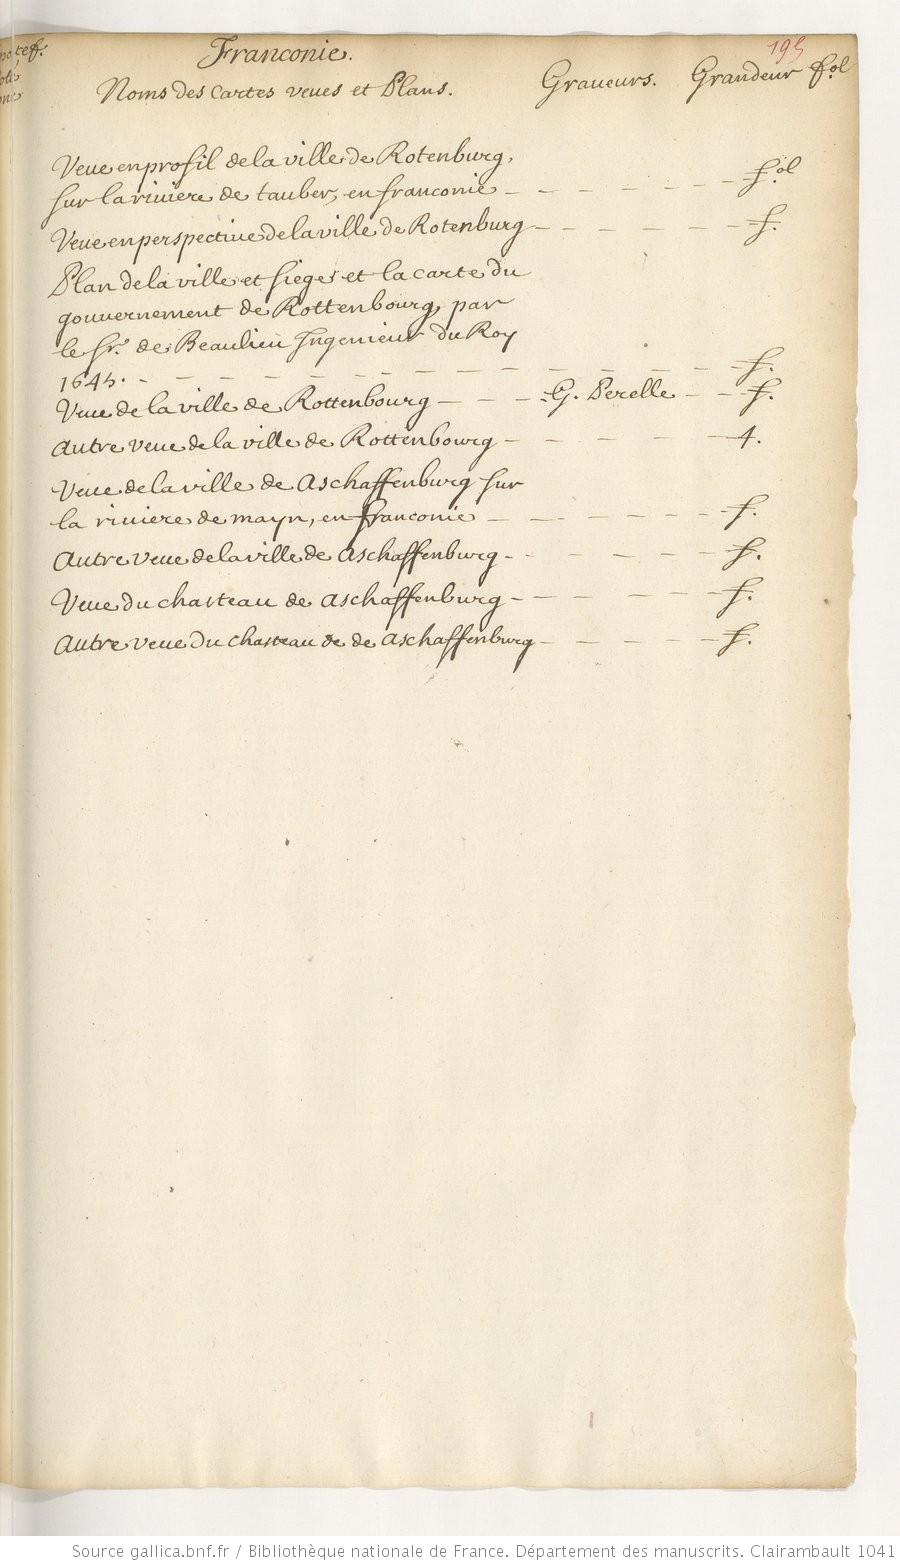 Franconie.
195
Noms des cartes veues et Plans. Graveurs. Grandeur fol
Veue en profil de la ville de Rotenburg,
sur la riviere de tauber, en franconie - - - - - - fol
Veue en perspective de la ville de Rotenburg - - - - - - f.
Plan de la ville et sieges et la carte du
gouvernement de Rottenbourg, par
le Sr. de Beaulieu Ingenieur du Roy
1645. - - - - - - - - - - - f.
Veue de la ville de Rottenbourg - - - G. Perelle - - f.
autre veue de la ville de Rottenbourg - - - - - 4.
Veue de la ville de aschaffenburg sur
la riviere de mayn, en franconie - - - - - f.
autre veue de la ville de aschaffenburg - - - - - f.
Veue du chasteau de aschaffenburg - - - - - f.
autre veue du chasteau de de aschaffenburg - - - - - f.
Source gallica.bnf.fr / Bibliothèque nationale de France. Département des manuscrits. Clairambault 1041